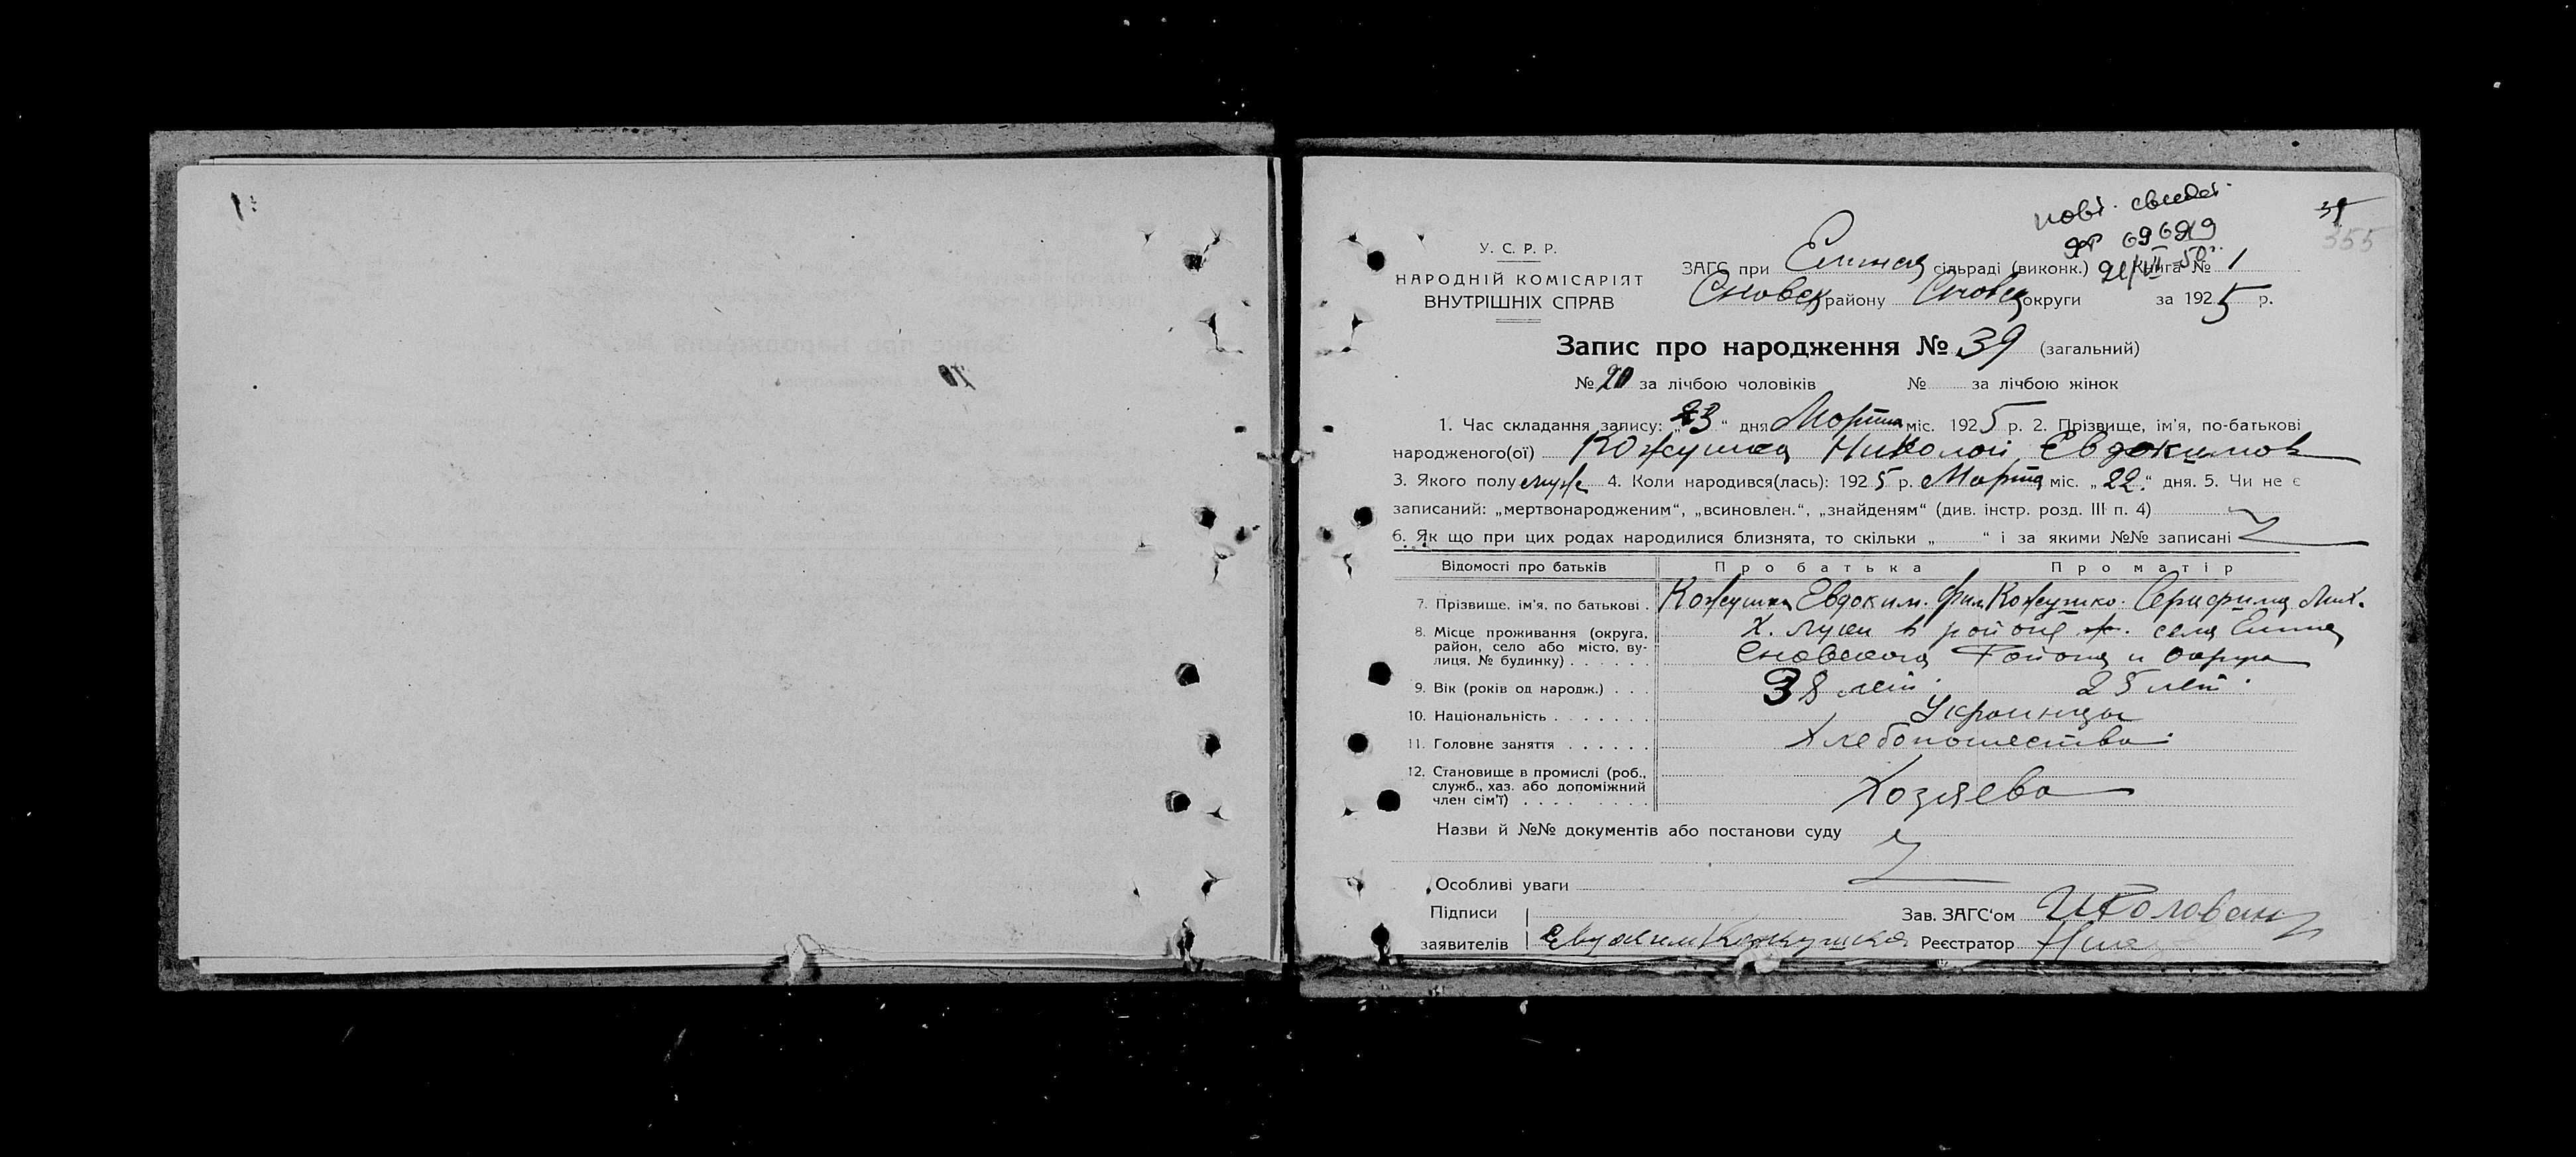 39
355
У. С. Р. Р.
НАРОДНІЙ КОМІСАРІЯТ
ВНУТРІШНІХ СПРАВ
ЗАГС при сільраді (виконк.) Книга № 1
Сновск району Сновск округи за 1925 р.
Запис про народження № 39 (загальний)
№ 20 за лічбою чоловіків № за лічбою жінок
1. Час складання запису: „23“ дня Марта міс. 1925 р. 2. Прізвище, ім'я, по-батькові
народженого(ої) Кожушка Николай Евдокимов
3. Якого полу муж 4. Коли народився(лась): 1925 р. Марта міс. „22“ дня. 5. Чи не є
записаний: „мертвонародженим“, „всиновлен.“, „знайденям“ (див. інстр. розд. III п. 4)
6. Як що при цих родах народилися близнята, то скільки „ “ і за якими №№ записані
Відомості про батьків Про батька Про матір
7. Прізвище, ім'я, по батькові . Кожушка Евдоким. Фил. Кожушко. Серафима Мих.
8. Місце проживання (округа, район, село або місто, вулиця, № будинку) . . . . . . х. Луки в районе села
Сновского Района и округа
9. Вік (років од народж.) . . . 38 лет. 25 лет.
10. Національність . . . . . . . Украинцы
11. Головне заняття . . . . . . Хлебопашества
12. Становище в промислі (роб., служб., хаз. або допоміжний член сім'ї) . . . . . . . . . Хозяева
Назви й №№ документів або постанови суду
Особливі уваги
Підписи Зав. ЗАГС'ом
заявителів Евдоким Кожушка Реєстратор